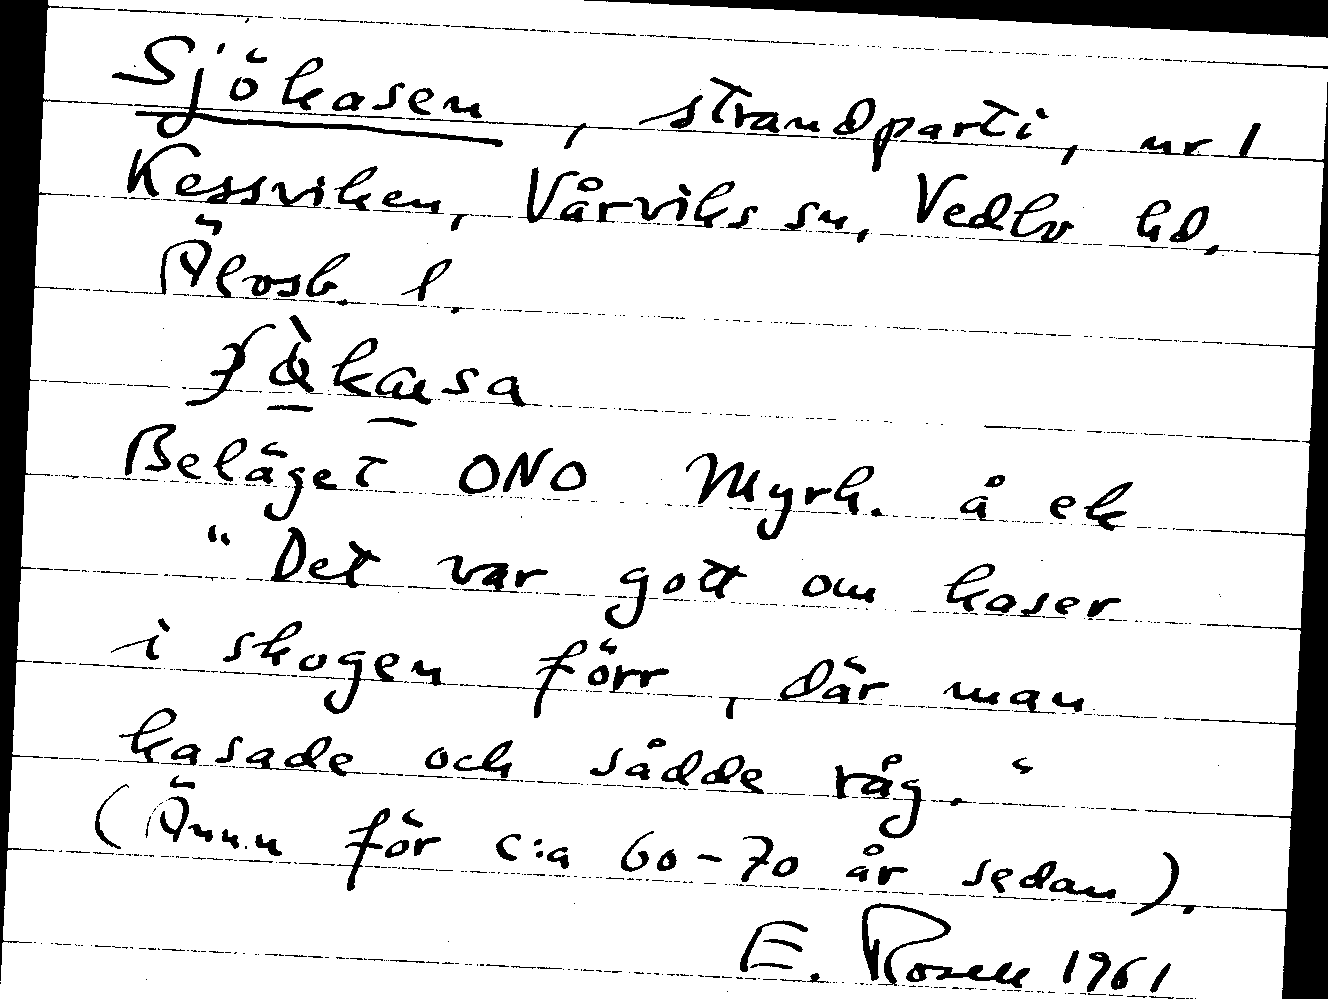 Sjökasen, strandparti, nr 1
Kessviken, Vårviks sn, Vedbo hd,
Älvsb. l.
Beläget ONO Myrh. å ek
"Det var gott om kaser
i skogen förr, där man
kasade och sådde råg."
(Ännu för c:a 60-70 år sedan).
E. Rosell 1961